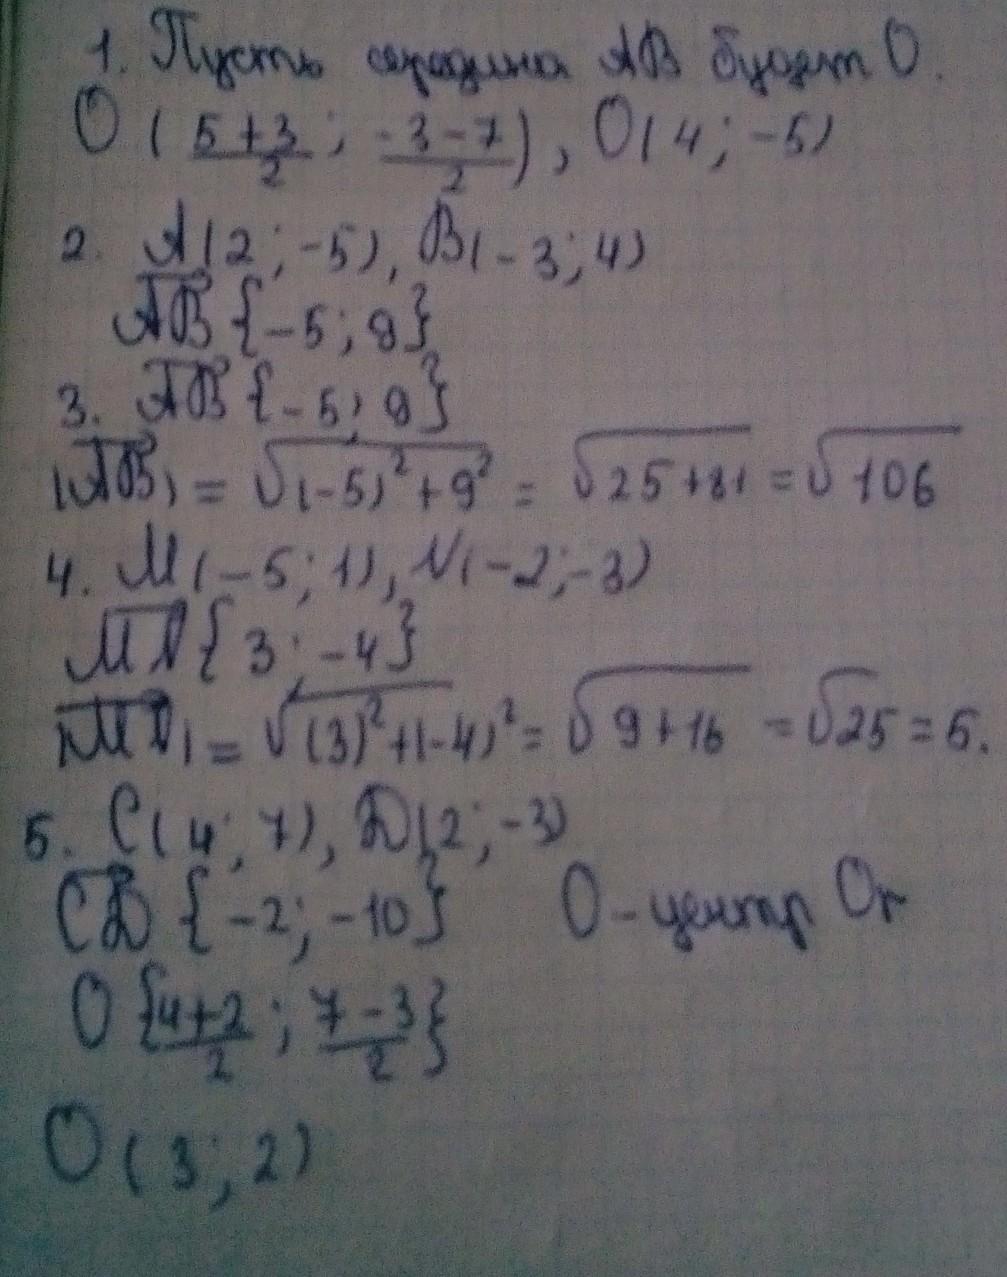 1. Пусть середина AB будет O.
O ( \frac{5+3}{2} ; \frac{-3-7}{2} ), O(4; -5)
2. A(2; -5), B(-3; 4)
\overline{AB} {-5; 9}
3. \overline{AB} {-5; 9}
|\overline{AB}| = \sqrt{(-5)^2+9^2} = \sqrt{25+81} = \sqrt{106}
4. M(-5; 1), N(-2; -3)
\overline{MN} {3; -4}
|\overline{MN}| = \sqrt{(3)^2+(-4)^2} = \sqrt{9+16} = \sqrt{25} = 5.
5. C(4; 7), D(2; -3)
\overline{CD} {-2; -10} O - центр Or
O {\frac{4+2}{2} ; \frac{7-3}{2}}
O (3; 2)